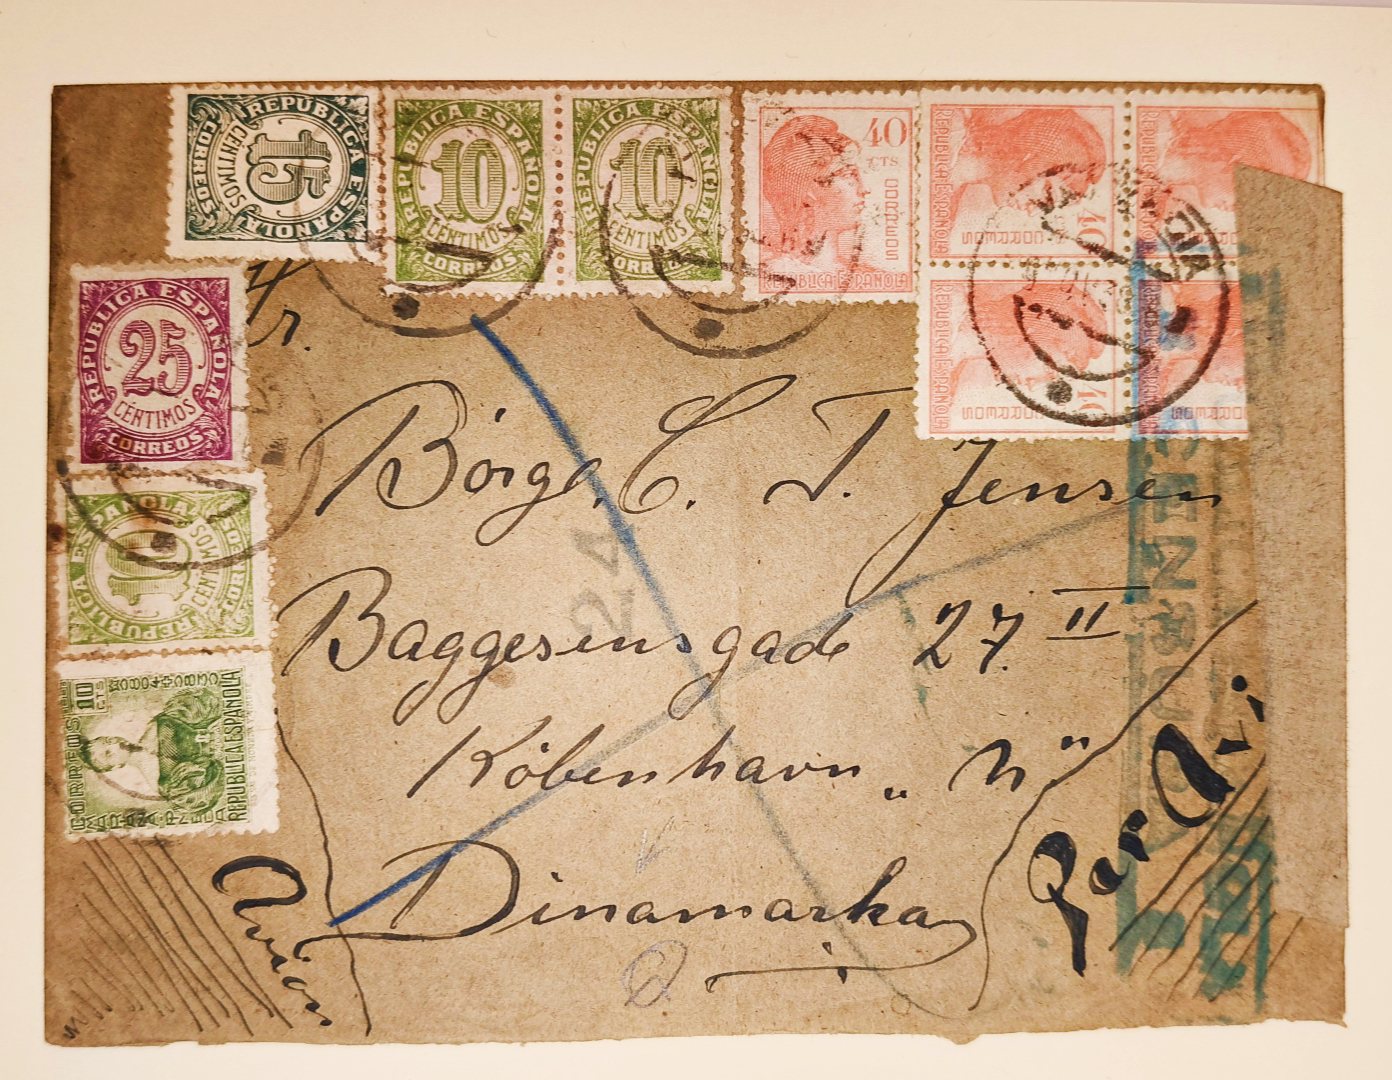 REPÚBLICA ESPAÑOLA
15
CENTIMOS
CORREOS
REPUBLICA ESPAÑOLA
10
CENTIMOS
CORREOS
REPUBLICA ESPAÑOLA
10
CENTIMOS
CORREOS
40
CTS
CORREOS
REPUBLICA ESPAÑOLA
REPUBLICA ESPAÑOLA
CORREOS
40
REPUBLICA ESPAÑOLA
REPUBLICA ESPAÑOLA
CORREOS
40
REPUBLICA ESPAÑOLA
CORREOS
VALENCIA
REPUBLICA ESPAÑOLA
25
CÉNTIMOS
CORREOS
REPUBLICA ESPAÑOLA
10
CENTIMOS
CORREOS
CORREOS
10
CTS
MARIANA PINEDA
REPUBLICA ESPAÑOLA
Hr.
Börge. C. T. Jensen
24
Baggesensgade 27. II
København „N"
Dinamarka
Par Avion
CENSURA